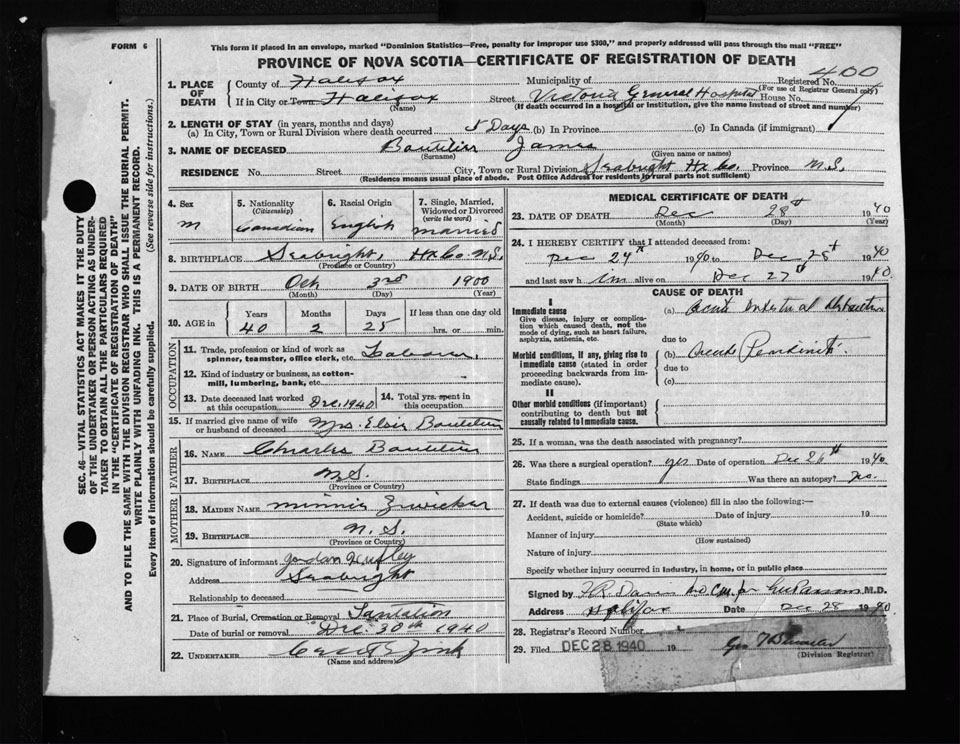 FORM 6
This form if placed in an envelope, marked "Dominion Statistics—Free, penalty for improper use $300," and properly addressed will pass through the mail "FREE"
PROVINCE OF NOVA SCOTIA—CERTIFICATE OF REGISTRATION OF DEATH
Registered No. 400
(For use of Registrar General only)
1. PLACE OF DEATH
County of Halifax Municipality of
If in City or Town Halifax Street Victoria General Hospital House No.
(Name) (If death occurred in a hospital or institution, give the name instead of street and number)
2. LENGTH OF STAY (in years, months and days)
(a) In City, Town or Rural Division where death occurred 5 Days (b) In Province (c) In Canada (if immigrant)
3. NAME OF DECEASED Boutilier James
(Surname) (Given name or names)
RESIDENCE No. Street City, Town or Rural Division Seabright Hx Co. Province N.S.
(Residence means usual place of abode. Post Office Address for residents in rural parts not sufficient)
4. Sex
M
5. Nationality
(Citizenship)
Canadian
6. Racial Origin
English
7. Single, Married, Widowed or Divorced
(write the word)
married
8. BIRTHPLACE Seabright, Hx Co N.S.
(Province or Country)
9. DATE OF BIRTH Oct 3rd 1900
(Month) (Day) (Year)
10. AGE in
Years Months Days If less than one day old
40 2 25 hrs. or min.
OCCUPATION
11. Trade, profession or kind of work as spinner, teamster, office clerk, etc. Laborer
12. Kind of industry or business, as cotton-mill, lumbering, bank, etc.
13. Date deceased last worked at this occupation Dec. 1940
14. Total yrs. spent in this occupation
15. If married give name of wife or husband of deceased Mrs. Boutilier
FATHER
16. NAME Charles Boutilier
17. BIRTHPLACE N.S.
(Province or Country)
MOTHER
18. MAIDEN NAME Minnie Zwicker
19. BIRTHPLACE N.S.
(Province or Country)
20. Signature of informant Gordon
Address Seabright
Relationship to deceased
21. Place of Burial, Cremation or Removal Tantallon
Date of burial or removal Dec. 30th 1940
22. UNDERTAKER Zink
(Name and address)
MEDICAL CERTIFICATE OF DEATH
23. DATE OF DEATH Dec 28th 1940
(Month) (Day) (Year)
24. I HEREBY CERTIFY that I attended deceased from:
Dec 24th 1940 to Dec 28th 1940
and last saw him alive on Dec 27th 1940
CAUSE OF DEATH
I
Immediate cause
Give disease, injury or complication which caused death, not the mode of dying, such as heart failure, asphyxia, asthenia, etc.
(a) Acute Intestinal Obstruction
due to
Morbid conditions, if any, giving rise to immediate cause (stated in order proceeding backwards from immediate cause).
(b) Acute Peritonitis
due to
(c)
II
Other morbid conditions (if important) contributing to death but not causally related to immediate cause.
25. If a woman, was the death associated with pregnancy?
26. Was there a surgical operation? yes Date of operation Dec 26th 1940
State findings Was there an autopsy? no.
27. If death was due to external causes (violence) fill in also the following:—
Accident, suicide or homicide? Date of injury 19
(State which)
Manner of injury
(How sustained)
Nature of injury
Specify whether injury occurred in industry, in home, or in public place
Signed by M.D.
Address Halifax Date Dec 28 1940
28. Registrar's Record Number
29. Filed DEC 28 1940 19 Geo
(Division Registrar)
SEC. 46—VITAL STATISTICS ACT MAKES IT THE DUTY
OF THE UNDERTAKER OR PERSON ACTING AS UNDER-
TAKER TO OBTAIN ALL THE PARTICULARS REQUIRED
IN THE "CERTIFICATE OF REGISTRATION OF DEATH"
AND TO FILE THE SAME WITH THE DIVISION REGISTRAR WHO SHALL ISSUE THE BURIAL PERMIT.
WRITE PLAINLY WITH UNFADING INK. THIS IS A PERMANENT RECORD.
Every item of information should be carefully supplied. (See reverse side for instructions.)